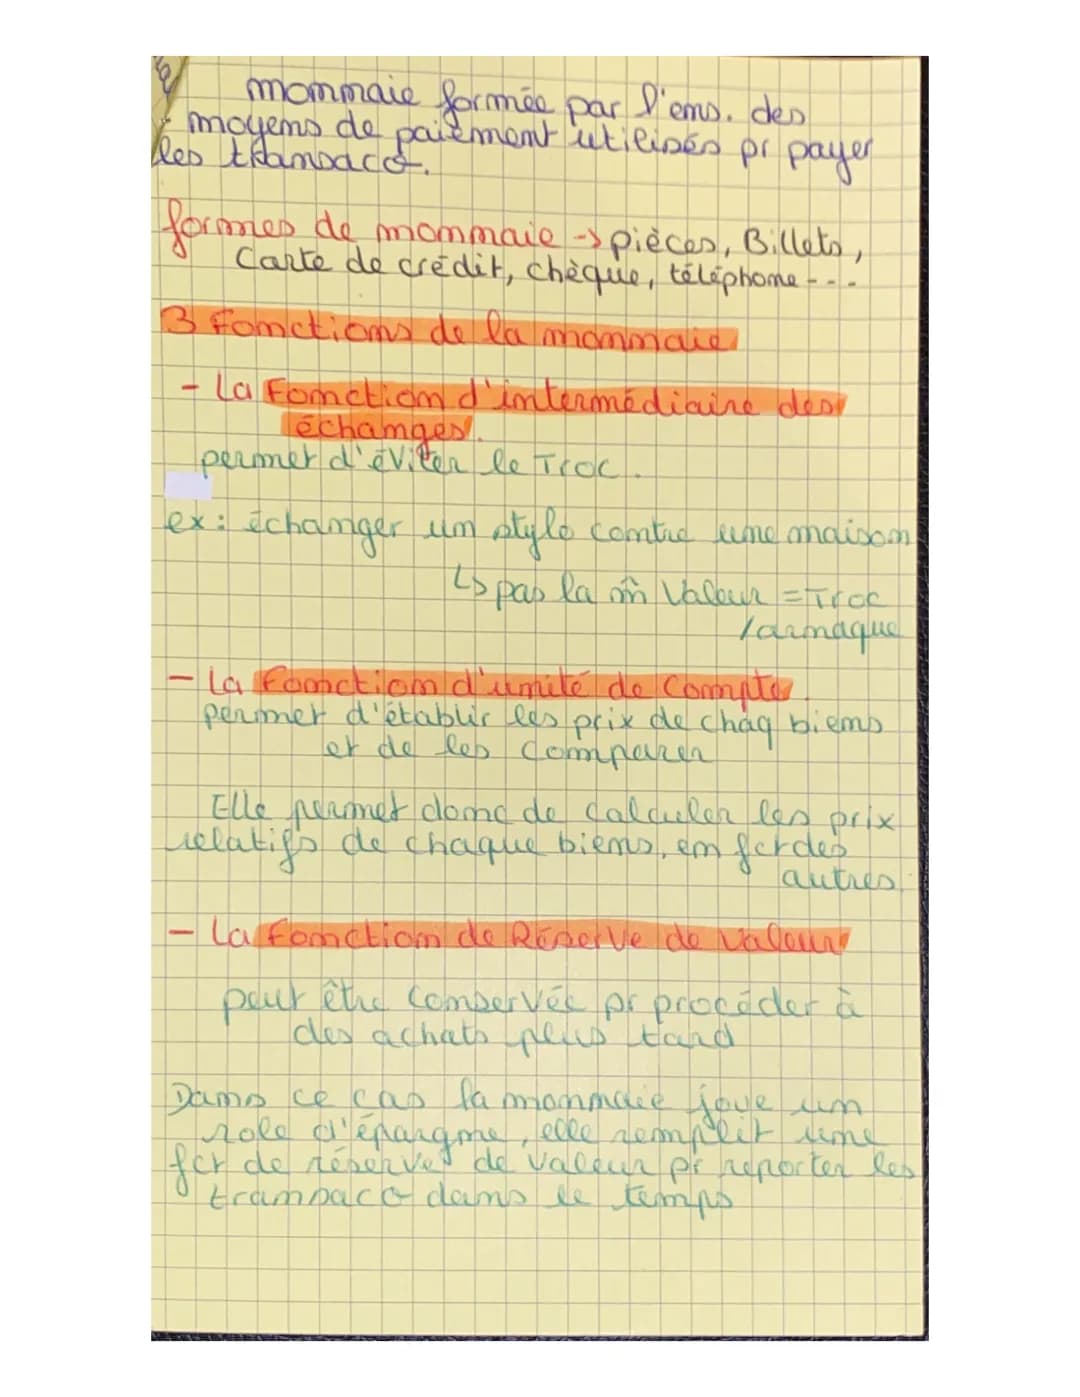 monnaie formée par l'ens. des
moyens de paiement utilisés pr payer
les transac°.
formes de monnaie -> pièces, Billets,
Carte de crédit, chèque, téléphone ---
3 fonctions de la monnaie
- La Fonction d'intermédiaire des
échanges.
permet d'éviter le Troc.
ex: échanger un stylo contre une maison
↳ pas la m̂ Valeur = Troc
/arnaque
- La Fonction d'unité de Compte.
permet d'établir les prix de chaq biens
et de les comparer
Elle permet donc de calculer les prix
relatifs de chaque biens, en fct des
autres.
- La fonction de Réserve de valeur
peut être Conservée pr procéder à
des achats plus tard
Dans ce cas la monnaie joue un
role d'épargne, elle remplit une
fct de réserve de valeur pr reporter les
transac° dans le temps